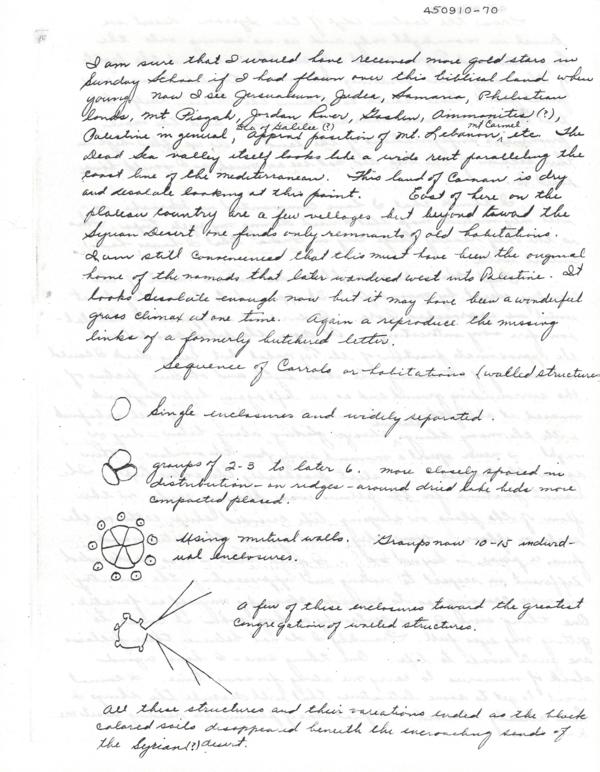 450910-70
I am sure that I would have received more gold stars in
Sunday School if I had flown over this biblical land when
young. Now I see Jerusuleum, Judea, Samaria, Philistian
lands, Mt Pisgah, Jordan River, Goshen, Ammonites (?),
Sea of Galilee (?) Mt Carmel
Palestine in general, approx position of Mt. Lebanon, etc. The
Dead Sea valley itself looks like a wide rent paralleling the
coast line of the Mediterranean. This land of Canan is dry
and desolate looking at this point. East of here on the
plateau country are a few villages but beyond toward the
Syrian Desert one finds only remnants of old habitations.
I am still convenienced that this must have been the original
home of the nomads that later wandered west into Palestine. It
looks desolate enough now but it may have been a wonderful
grass climax at one time. Again a reproduce the missing
links of a formerly butchered letter.
Sequence of Corrals or habitations (walled structures
Single enclosures and widely separated.
groups of 2-3 to later 6. more closely spaced in
distribution - on ridges - around dried lake beds more
compacted placed.
Using mutual walls. Groups now 10-15 individ-
ual enclosures.
A few of these enclosures toward the greatest
congregation of walled structures.
All these structures and their variations ended as the black
colored soils disappeared beneath the incroaching sands of
the Syrian (?) desert.